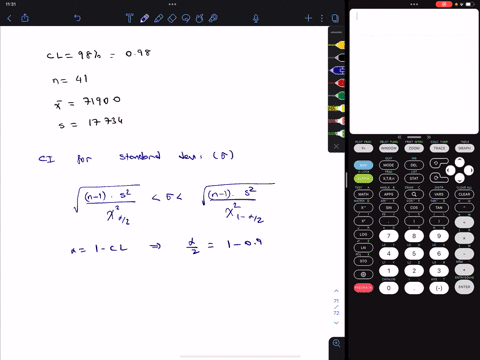 11:31
CL = 98% = 0.98
n = 41
x̄ = 71900
s = 17734
CI for standard dev: (σ)
√((n-1) · s² / X²α/2) < σ < √((n-1) · s² / X²1-α/2)
α = 1 - CL ⇒ α/2 = 1 - 0.9
71
72
WINDOW ZOOM TRACE GRAPH
MODE DEL
X,T,θ,n STAT
MATH APPS PRGM VARS CLEAR
SIN COS TAN
( )
LOG 7 8 9
LN 4 5 6
STO 1 2 3
0 . (-) ENTER